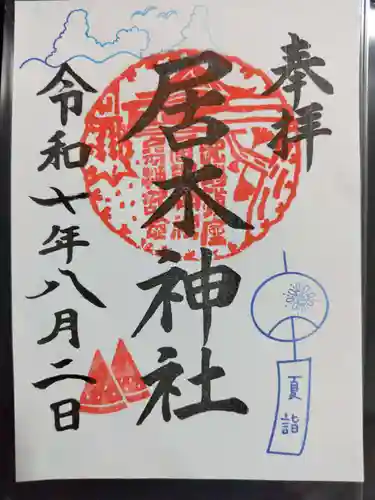 奉拝
居木神社
令和七年八月二日
夏詣